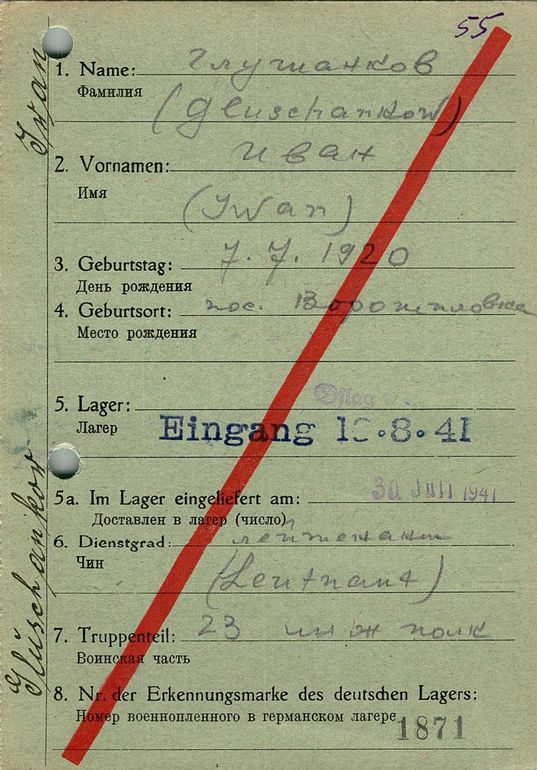 55
1. Name: Глушанков
Фамилия
(Gluschankow)
2. Vornamen: Иван
Имя
(Iwan)
3. Geburtstag: 7. 7. 1920
День рождения
4. Geburtsort: пос. Ворошиловка
Место рождения
Oflag
5. Lager:
Лагер
Eingang 8.41
5a. Im Lager eingeliefert am: 30 Juli 1941
Доставлен в лагер (число)
6. Dienstgrad: лейтенант
Чин
(Leutnant)
7. Truppenteil: 23 инж полк
Воинская часть
8. Nr. der Erkennungsmarke des deutschen Lagers:
Номер военнопленного в германском лагере 1871
Gluschankow Iwan